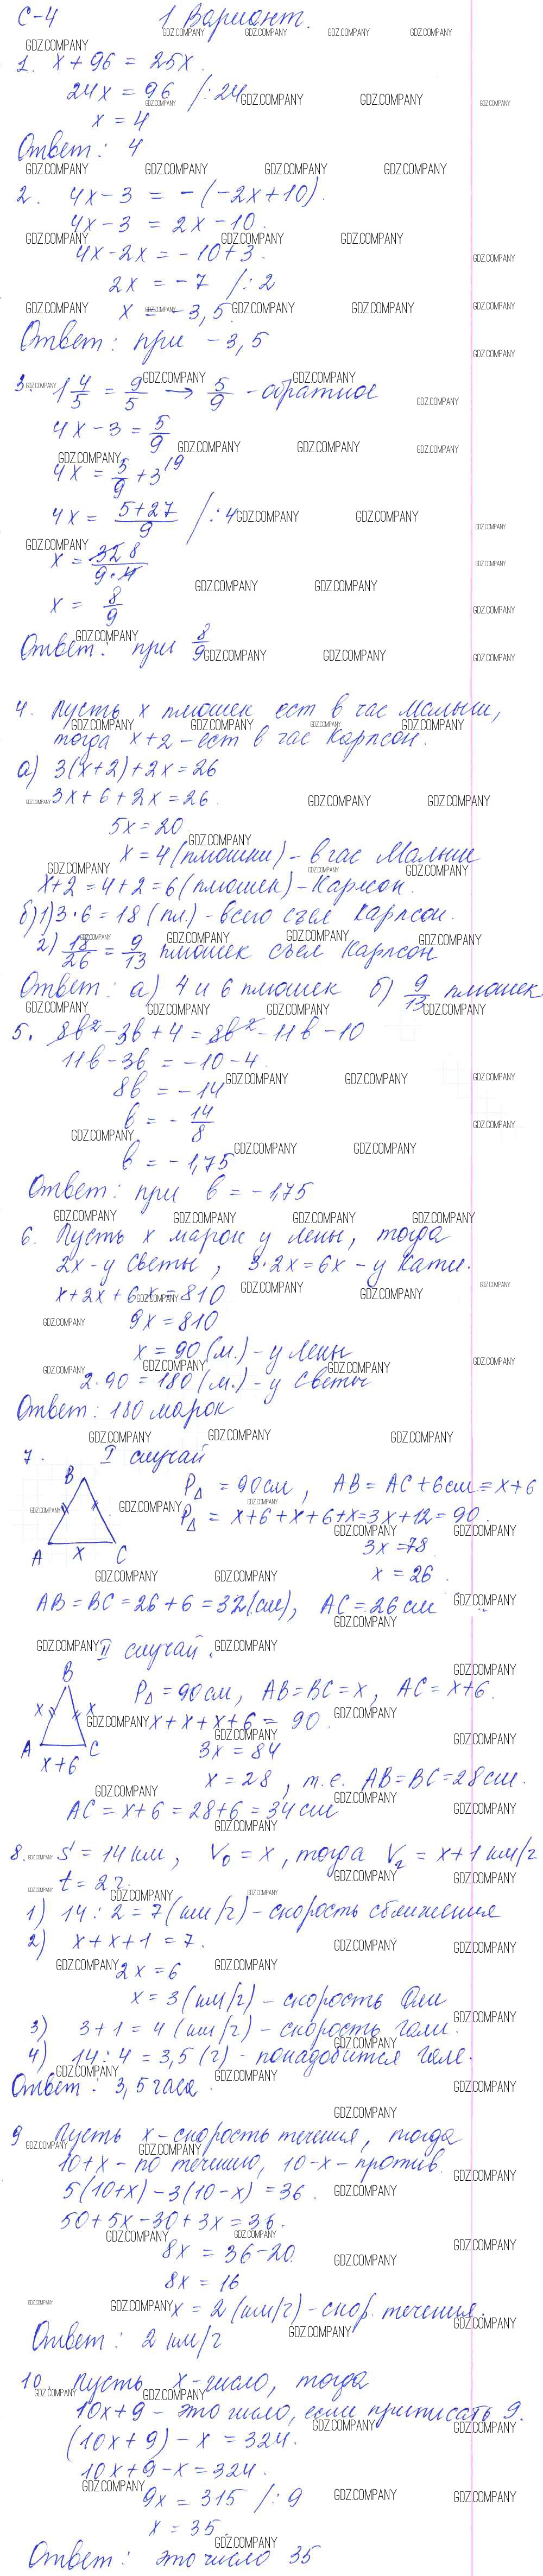 С-4 1 Вариант.
1. x + 96 = 25x
24x = 96 /:24
x = 4
Ответ: 4
2. 4x - 3 = -(-2x+10).
4x - 3 = 2x - 10.
4x - 2x = -10 + 3.
2x = -7 /:2
x = -3,5
Ответ: при -3,5
3. 1 4/5 = 9/5 → 5/9 - обратное
4x - 3 = 5/9
4x = 5/9 + 3^{19}
4x = (5+27)/9 /:4
x = 32 8/(9·4)
x = 8/9
Ответ: при 8/9
4. Пусть x плюшек ест в час Малыш,
тогда x+2 - ест в час Карлсон.
а) 3(x+2)+2x=26
3x+6+2x=26.
5x=20
x=4 (плюшки) - в час Малыш
x+2=4+2=6 (плюшек) - Карлсон.
б) 1) 3·6=18 (пл) - всего съел Карлсон.
2) 18/26 = 9/13 плюшек съел Карлсон
Ответ: а) 4 и 6 плюшек б) 9/13 плюшек
5. 8b²-3b+4=8b²-11b-10
11b-3b = -10-4.
8b = -14
b = -14/8
b = -1,75
Ответ: при b = -1,75
6. Пусть x марок у Лены, тогда
2x - у Светы, 3·2x=6x - у Кати.
x+2x+6x=810
9x=810
x=90 (м.) - у Лены
2·90=180 (м.) - у Светы
Ответ: 180 марок
7. I случай
B
P△ = 90 см, AB=AC+6 см=x+6
P△ = x+6+x+6+x=3x+12=90.
3x=78
A x C
x=26.
AB=BC=26+6=32(см), AC=26 см
II случай.
B
P△=90 см, AB=BC=x, AC=x+6.
x x
x+x+x+6=90.
A C
3x=84
x+6
x=28, т.е. AB=BC=28 см.
AC=x+6=28+6=34 см
8. S=14 км, V₀=x, тогда V₂=x+1 км/ч
t=2 ч.
1) 14:2=7 (км/ч) - скорость сближения
2) x+x+1=7.
2x=6
x=3 (км/ч) - скорость Оли
3) 3+1=4 (км/ч) - скорость Гали.
4) 14:4=3,5 (ч) - понадобится Гале.
Ответ: 3,5 часа.
9 Пусть x - скорость течения, тогда
10+x - по течению, 10-x - против.
5(10+x)-3(10-x)=36.
50+5x-30+3x=36.
8x = 36-20
8x = 16
x=2 (км/ч) - скор. течения.
Ответ: 2 км/ч
10. Пусть x-число, тогда
10x+9 - это число, если приписать 9.
(10x+9)-x=324.
10x+9-x=324.
9x=315 /:9
x=35
Ответ: это число 35
GDZ.COMPANY